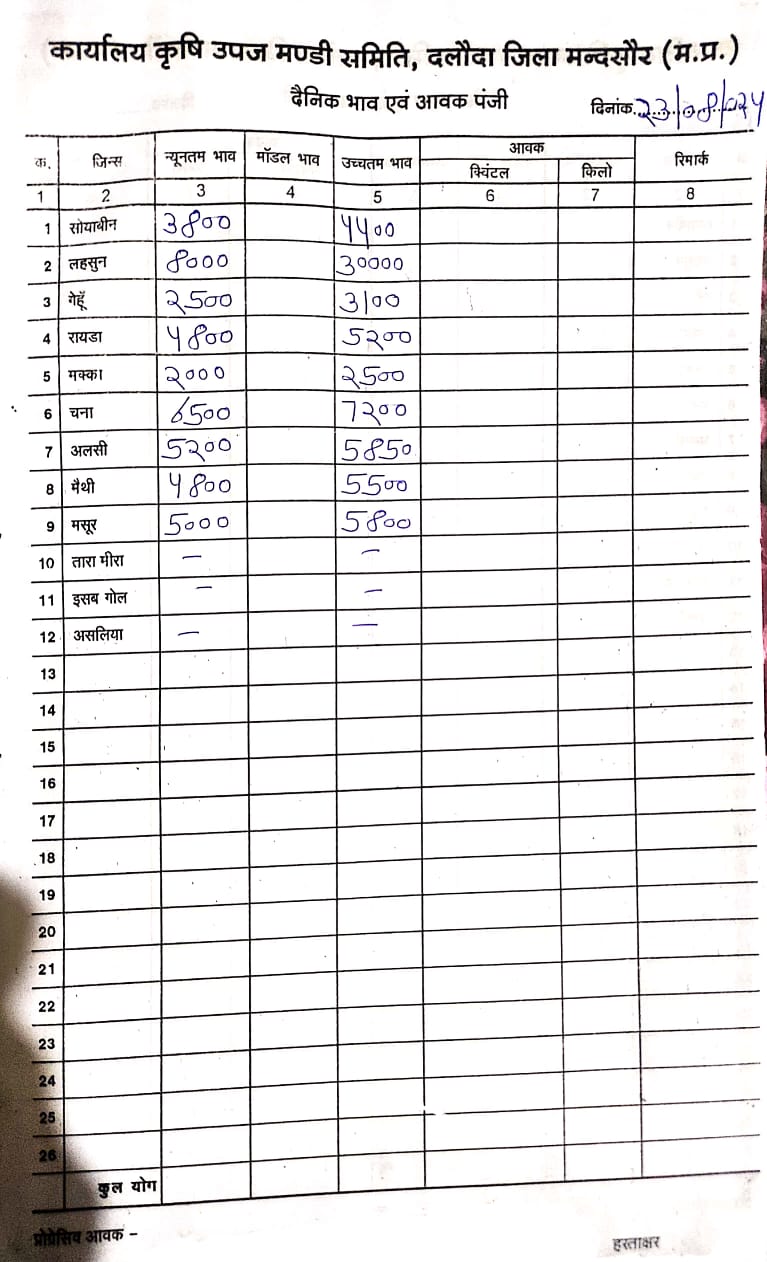 कार्यालय कृषि उपज मण्डी समिति, दलौदा जिला मन्दसौर (म.प्र.)
दैनिक भाव एवं आवक पंजी
दिनांक.23/08/024
क. जिन्स न्यूनतम भाव मॉडल भाव उच्चतम भाव आवक रिमार्क
क्विंटल किलो
1 2 3 4 5 6 7 8
1 सोयाबीन 3800 4400
2 लहसुन 8000 30000
3 गेहूँ 2500 3100
4 रायडा 4800 5200
5 मक्का 2000 2500
6 चना 6500 7200
7 अलसी 5200 5850
8 मैथी 4800 5500
9 मसूर 5000 5800
10 तारा मीरा — —
11 इसब गोल — —
12 असलिया — —
13
14
15
16
17
18
19
20
21
22
23
24
25
26
कुल योग
प्रोग्रेसिव आवक -
हस्ताक्षर